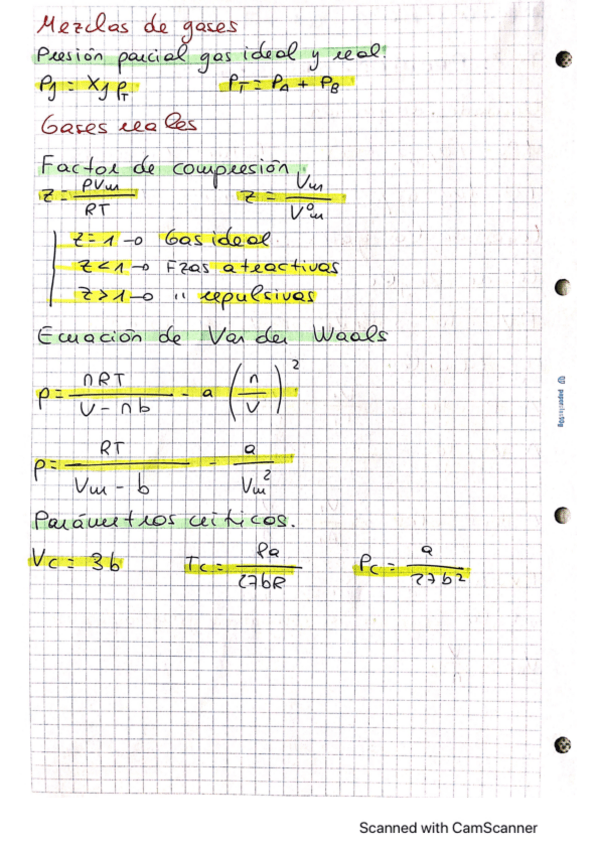 Mezclas de gases
Presión parcial gas ideal y real.
PJ = XJ PT    PT = PA + PB
Gases reales
Factor de compresión
Z = PVm / RT    Z = Vm / V°m
Z = 1 → Gas ideal
Z < 1 → Fzas atractivas
Z > 1 → " repulsivas
Ecuación de Van der Waals
P = nRT / (V - nb) - a (n / V)²
P = RT / (Vm - b) - a / Vm²
Parámetros críticos.
Vc = 3b    Tc = 8a / 27bR    Pc = a / 27b²
Scanned with CamScanner